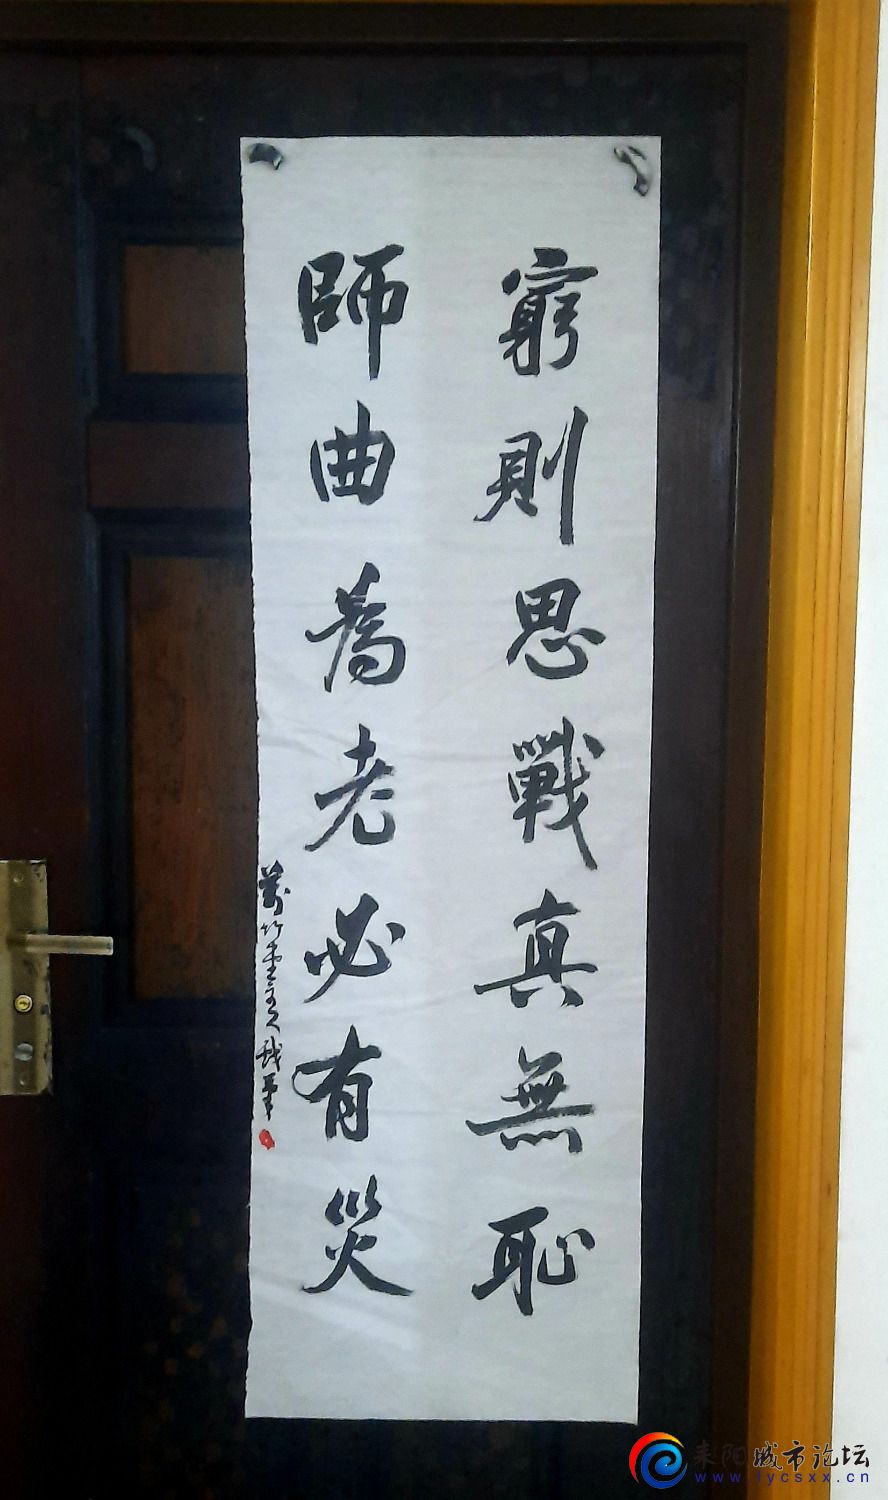 窮則思戰真無恥
師曲為老必有災
萬竹堂主人戲筆
耒阳城市论坛
www.lycsxx.cn